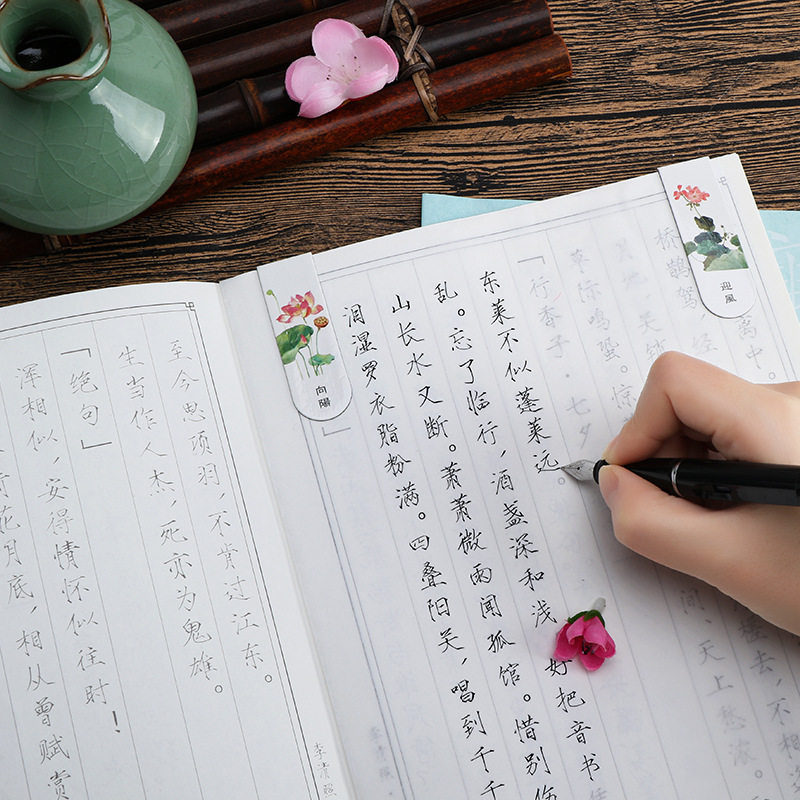 花月底，相从曾赋赏
浑相似，安得情怀似往时！
「绝句」
生当作人杰，死亦为鬼雄。
至今思项羽，不肯过江东。
李清照
向陽
泪湿罗衣脂粉满。四叠阳关，唱到千千
山长水又断。萧萧微雨闻孤馆。惜别伤
乱。忘了临行，酒盏深和浅 好把音书
东莱不似蓬莱远。
「行香子·七夕
草际鸣蛩。惊 间、天上愁浓。
地，关锁 槎去，不相
桥鹊驾 经
离中。
迎風
李清照